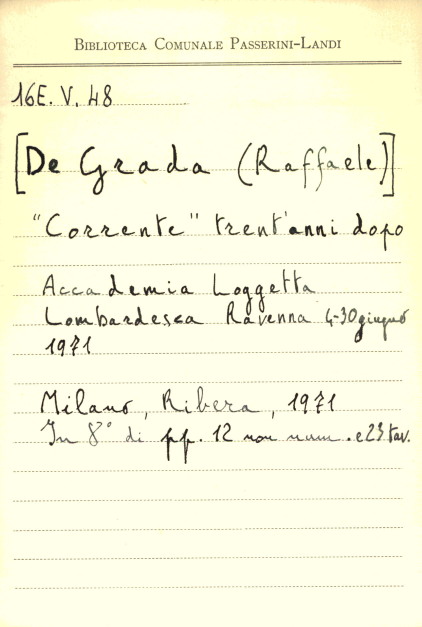 Biblioteca Comunale Passerini-Landi
16E. V. 48
[De Grada (Raffaele)]
"Corrente" trent'anni dopo
Accademia Loggetta
Lombardesca Ravenna 4-30 giugno
1971
Milano, Ribera, 1971
In 8° di pp. 12 non num. e 23 tav.